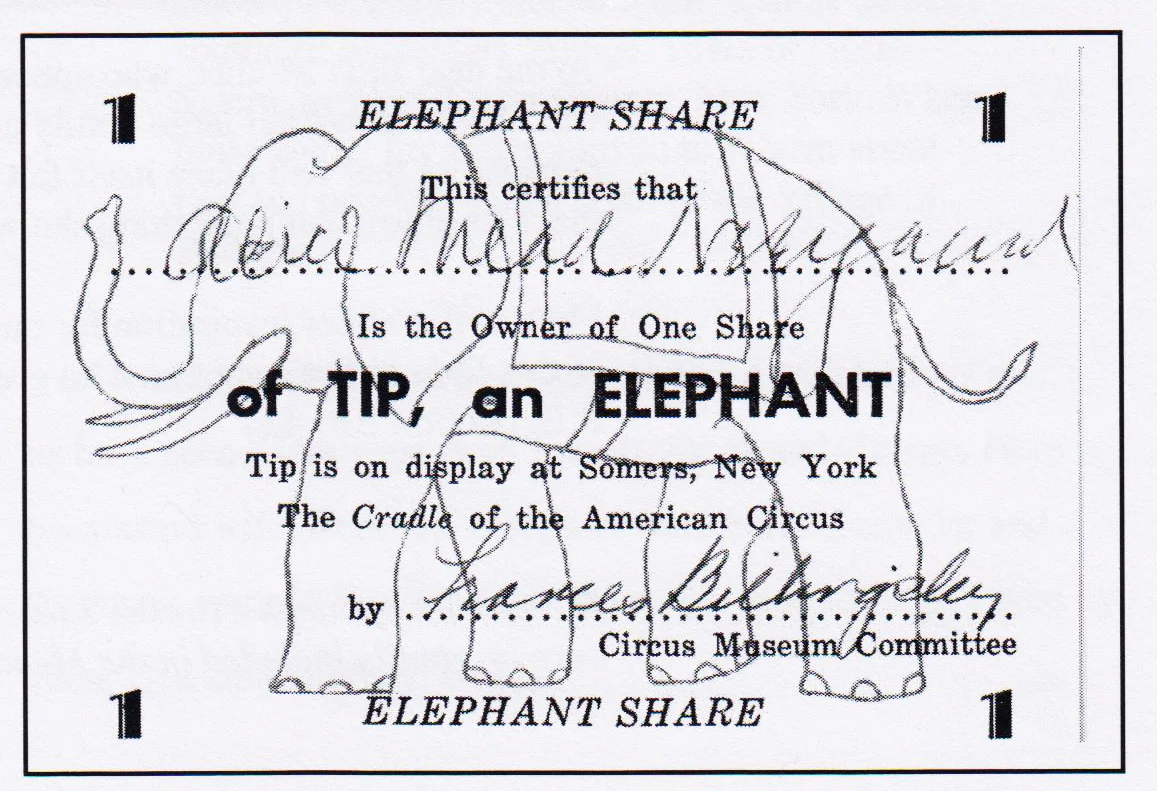 1 ELEPHANT SHARE 1
This certifies that
Alice Mead
Is the Owner of One Share
of TIP, an ELEPHANT
Tip is on display at Somers, New York
The Cradle of the American Circus
by Frances Billingsley
Circus Museum Committee
1 ELEPHANT SHARE 1